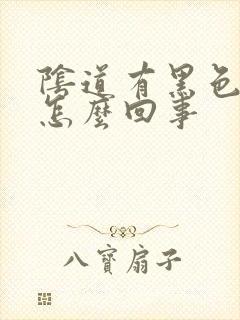 陰道有黑色
怎麼回事
八寶扇子